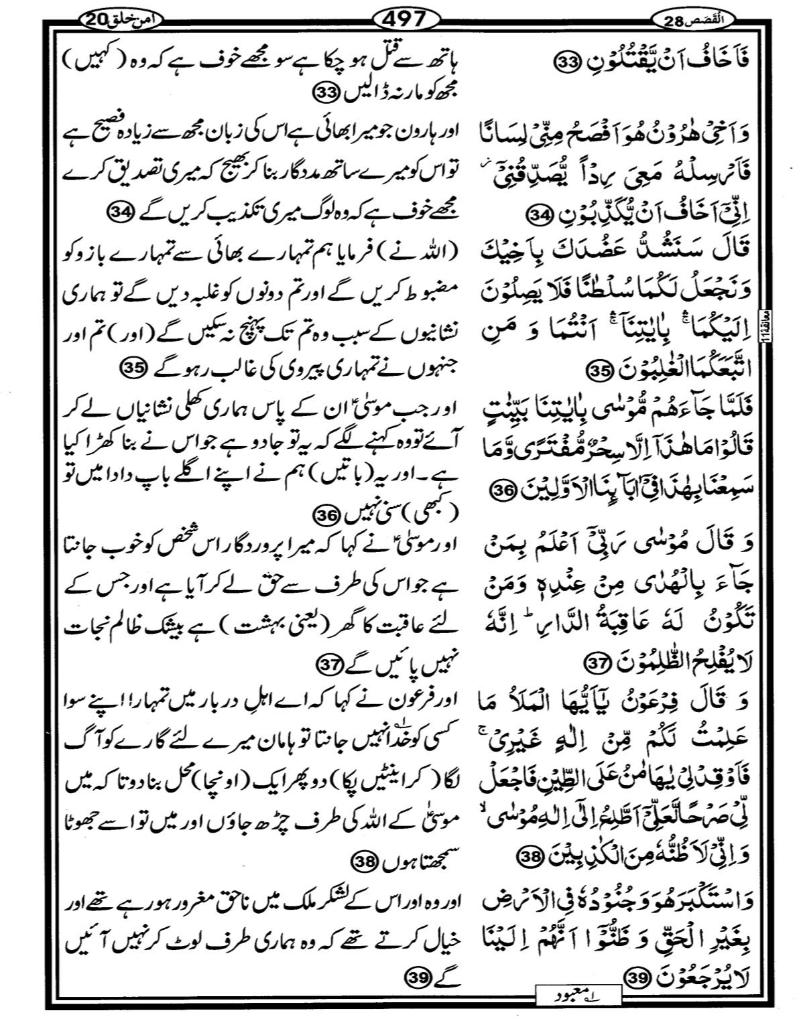 القصص 28
497
امن خلق 20
فَاَخَافُ اَنۡ يَّقۡتُلُوۡنِ 33
وَاَخِىۡ هٰرُوۡنُ هُوَ اَفۡصَحُ مِنِّىۡ لِسَانًا
فَاَرۡسِلۡهُ مَعِىَ رِدۡاً يُّصَدِّقُنِىۡٓ
اِنِّىۡۤ اَخَافُ اَنۡ يُّكَذِّبُوۡنِ 34
قَالَ سَنَشُدُّ عَضُدَكَ بِاَخِيۡكَ
وَنَجۡعَلُ لَكُمَا سُلۡطٰنًا فَلَا يَصِلُوۡنَ
اِلَيۡكُمَا ۛ بِاٰيٰتِنَاۤ ۛ اَنۡتُمَا وَ مَنِ
اتَّبَعَكُمَا الۡغٰلِبُوۡنَ 35
فَلَمَّا جَآءَهُمۡ مُّوۡسٰى بِاٰيٰتِنَا بَيِّنٰتٍ
قَالُوۡا مَا هٰذَاۤ اِلَّا سِحۡرٌ مُّفۡتَرًى وَّمَا
سَمِعۡنَا بِهٰذَا فِىۡۤ اٰبَآئِنَا الۡاَوَّلِيۡنَ 36
وَ قَالَ مُوۡسٰى رَبِّىۡۤ اَعۡلَمُ بِمَنۡ
جَآءَ بِالۡهُدٰى مِنۡ عِنۡدِهٖ وَمَنۡ
تَكُوۡنُ لَهٗ عَاقِبَةُ الدَّارِ ؕ اِنَّهٗ
لَا يُفۡلِحُ الظّٰلِمُوۡنَ 37
وَ قَالَ فِرۡعَوۡنُ يٰۤاَيُّهَا الۡمَلَاُ مَا
عَلِمۡتُ لَكُمۡ مِّنۡ اِلٰهٍ غَيۡرِىۡ ۚ
فَاَوۡقِدۡ لِىۡ يٰهَامٰنُ عَلَى الطِّيۡنِ فَاجۡعَلْ
لِّىۡ صَرۡحًا لَّعَلِّىۡۤ اَطَّلِعُ اِلٰٓى اِلٰهِ مُوۡسٰى ۙ
وَاِنِّىۡ لَاَظُنُّهٗ مِنَ الۡكٰذِبِيۡنَ 38
وَاسۡتَكۡبَرَ هُوَ وَجُنُوۡدُهٗ فِى الۡاَرۡضِ
بِغَيۡرِ الۡحَقِّ وَ ظَنُّوۡۤا اَنَّهُمۡ اِلَيۡنَا
لَا يُرۡجَعُوۡنَ 39
ہاتھ سے قتل ہو چکا ہے سو مجھے خوف ہے کہ وہ (کہیں)
مجھ کو مار نہ ڈالیں 33
اور ہارون جو میرا بھائی ہے اس کی زبان مجھ سے زیادہ فصیح ہے
تو اس کو میرے ساتھ مددگار بنا کر بھیج کہ میری تصدیق کرے
مجھے خوف ہے کہ وہ لوگ میری تکذیب کریں گے 34
(اللہ نے) فرمایا ہم تمہارے بھائی سے تمہارے بازو کو
مضبوط کریں گے اور تم دونوں کو غلبہ دیں گے تو ہماری
نشانیوں کے سبب وہ تم تک پہنچ نہ سکیں گے (اور) تم اور
جنہوں نے تمہاری پیروی کی غالب رہو گے 35
اور جب موسیٰؑ ان کے پاس ہماری کھلی نشانیاں لے کر
آئے تو وہ کہنے لگے کہ یہ تو جادو ہے جو اس نے بنا کھڑا کیا
ہے۔ اور یہ (باتیں) ہم نے اپنے اگلے باپ دادا میں تو
(کبھی) سنی نہیں 36
اور موسیٰؑ نے کہا کہ میرا پروردگار اس شخص کو خوب جانتا
ہے جو اس کی طرف سے حق لے کر آیا ہے اور جس کے
لئے عاقبت کا گھر (یعنی بہشت) ہے بیشک ظالم نجات
نہیں پائیں گے 37
اور فرعون نے کہا کہ اے اہلِ دربار میں تمہارا اپنے سوا
کسی کو خدا نہیں جانتا تو ہامان میرے لئے گارے کو آگ
لگا (کر اینٹیں پکا) دو پھر ایک (اونچا) محل بنا دو تا کہ میں
موسیٰؑ کے اللہ کی طرف چڑھ جاؤں اور میں تو اسے جھوٹا
سمجھتا ہوں 38
اور وہ اور اس کے لشکر ملک میں ناحق مغرور ہو رہے تھے اور
خیال کرتے تھے کہ وہ ہماری طرف لوٹ کر نہیں آئیں
گے 39
معانقة 11
۱؎ معبود